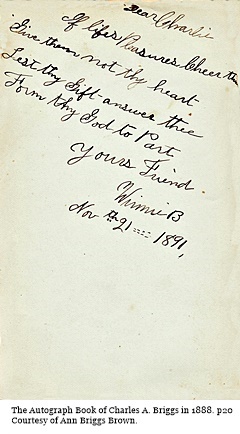 Dear Charlie
If lifes Pleasures Cheer the
Give them not thy heart
Lest thy Gift answer thee
Form thy God to Part
Yours Friend.
Winnie B
Nov th 21 1891,
The Autograph Book of Charles A. Briggs in 1888. p20
Courtesy of Ann Briggs Brown.